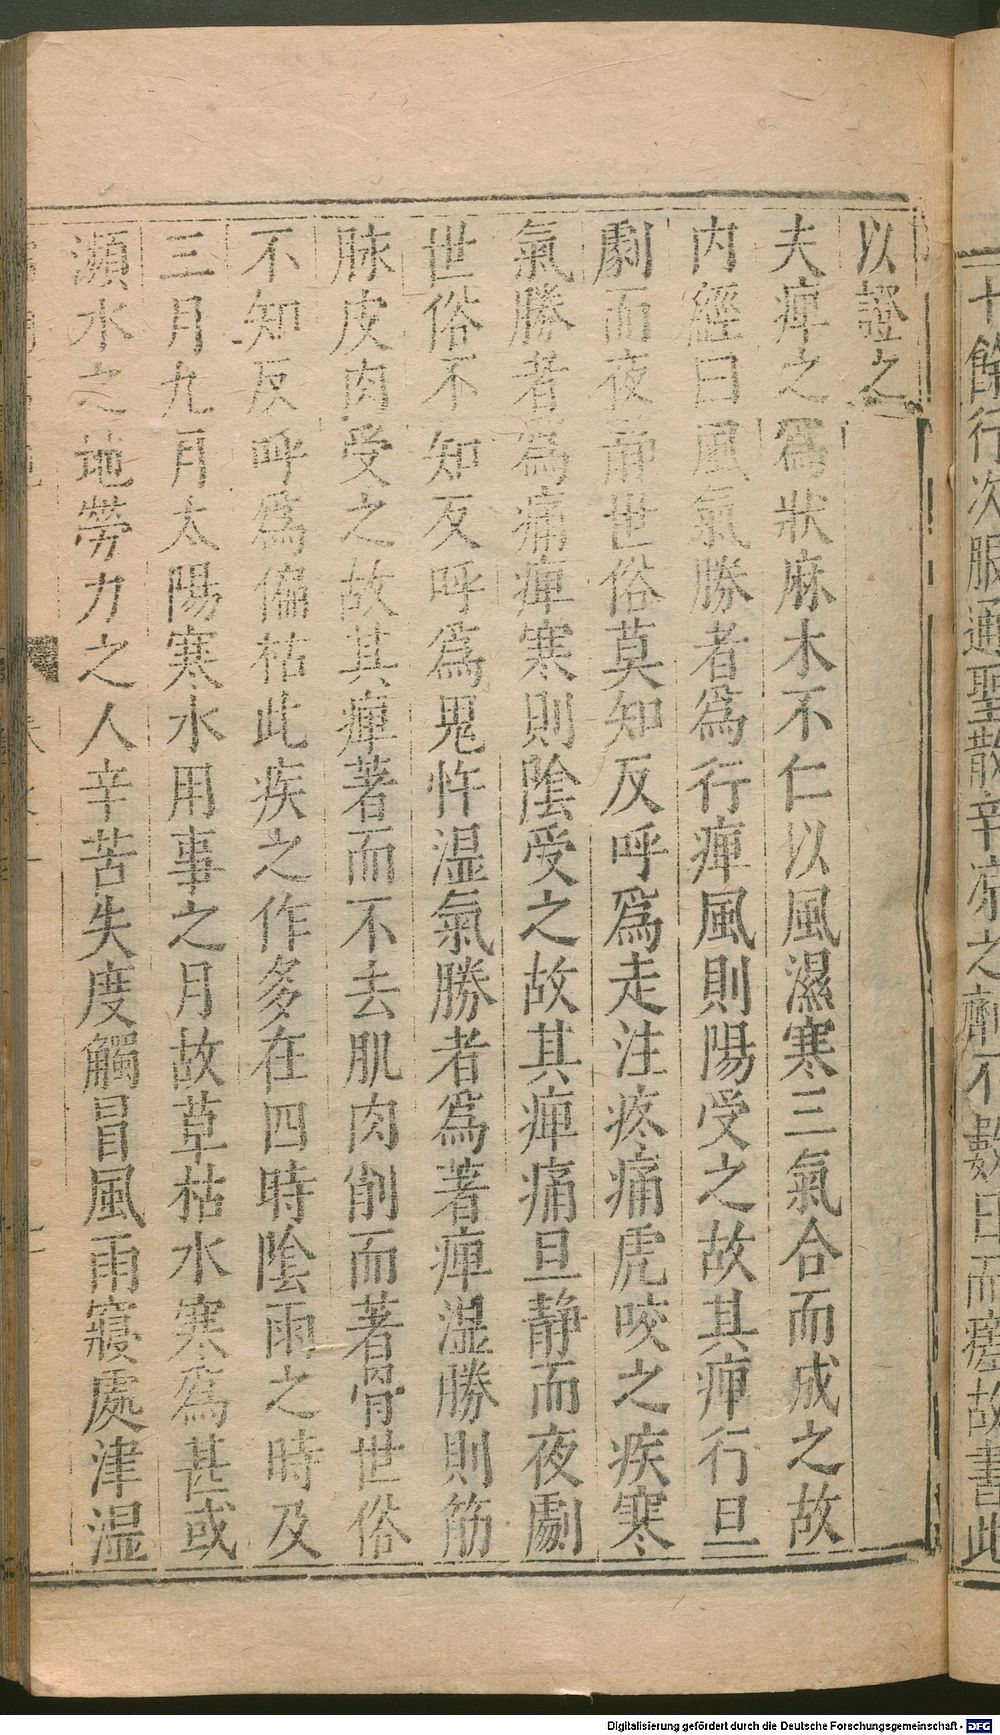 十餘行次服通聖散辛凉之劑不數日而瘥故書此
以證之
夫痺之爲狀麻木不仁以風濕寒三氣合而成之故
内經曰風氣勝者爲行痺風則陽受之故其痺行旦
劇而夜静世俗莫知反呼爲走注疼痛虎咬之疾寒
氣勝者爲痛痺寒則陰受之故其痺痛旦静而夜劇
世俗不知反呼爲鬼忤湿氣勝者爲著痺湿勝則筋
脉皮肉受之故其痺著而不去肌肉削而著骨世俗
不知反呼爲偏枯此疾之作多在四時陰雨之時及
三月九月太陽寒水用事之月故草枯水寒爲甚或
瀕水之地勞力之人辛苦失度觸冒風雨寢處津湿
Digitalisierung gefördert durch die Deutsche Forschungsgemeinschaft - DFG